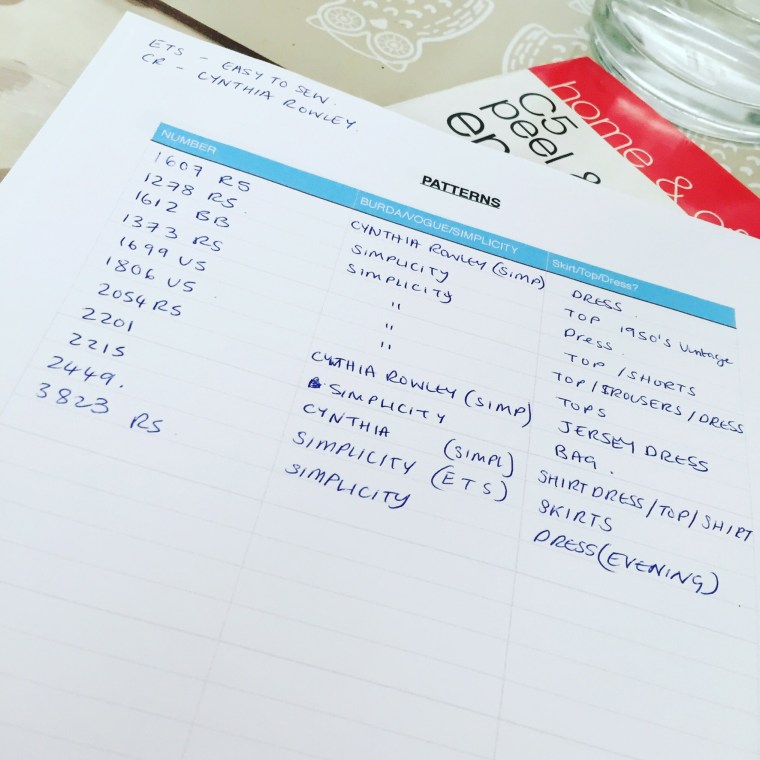 ETS - EASY TO SEW.
CR - CYNTHIA ROWLEY.
home &
C5
peel &
PATTERNS
NUMBER BURDA/VOGUE/SIMPLICITY Skirt/Top/Dress?
1607 RS CYNTHIA ROWLEY (SIMP) DRESS.
1278 RS. SIMPLICITY TOP 1950's Vintage
1612 BB SIMPLICITY Dress.
1373 RS " TOP / SHORTS
1699 US " TOP/TROUSERS/DRESS
1806 US " TOPS
2054 RS CYTHIA ROWLEY (SIMP) JERSEY DRESS
2201 SIMPLICITY BAG.
2215 CYNTHIA (SIMPL) SHIRT DRESS/TOP/SHIRT
2449. SIMPLICITY (ETS) SKIRTS
3823 RS. SIMPLICITY DRESS (EVENING)